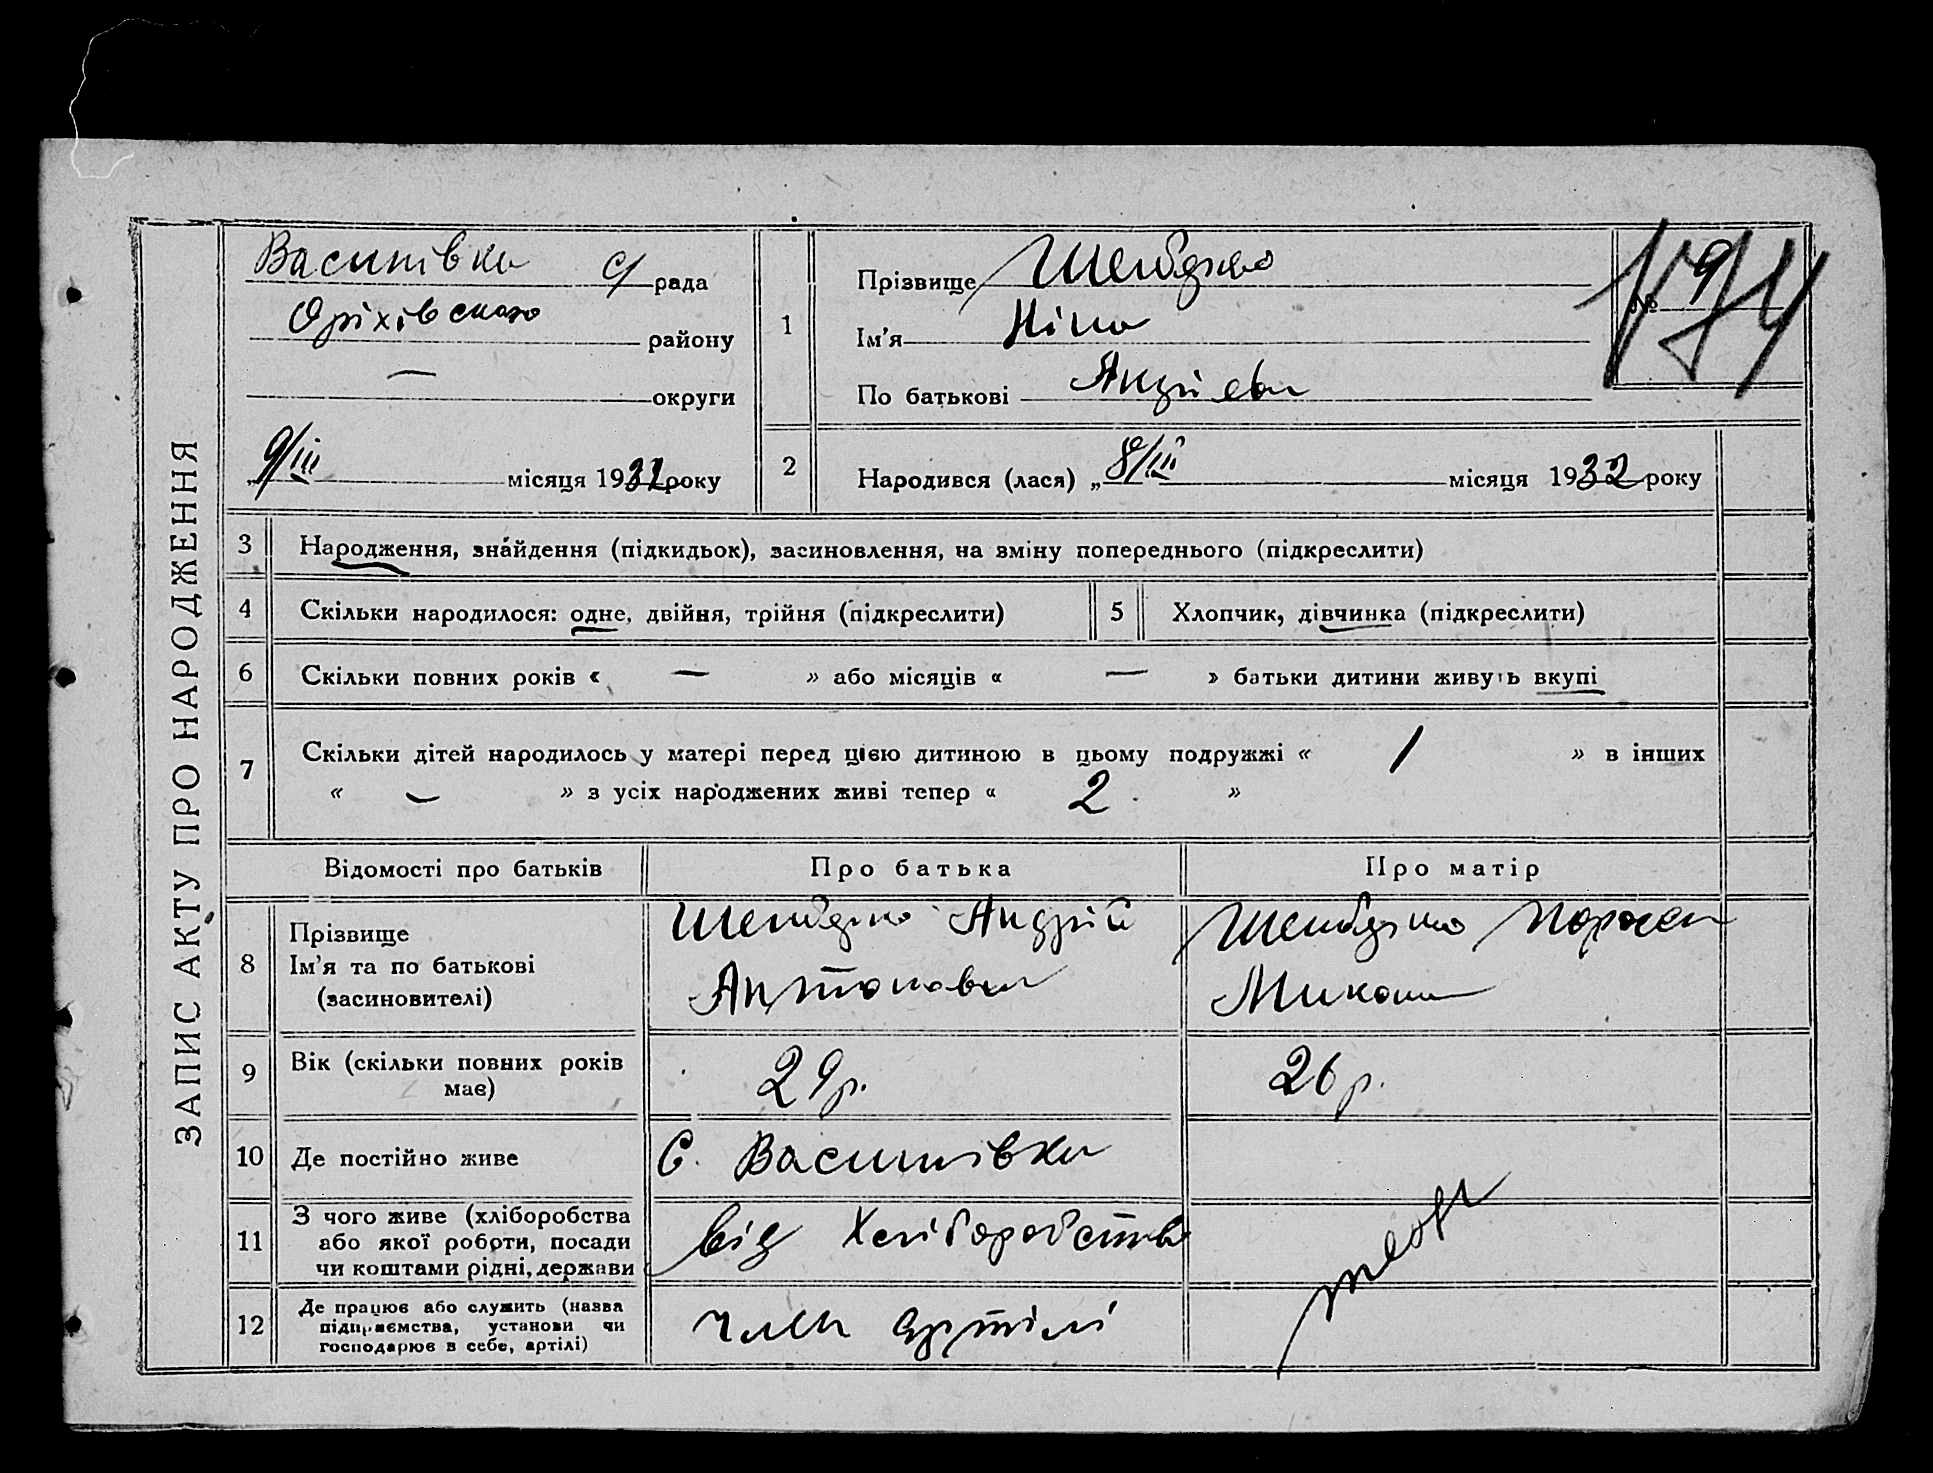 ЗАПИС АКТУ ПРО НАРОДЖЕННЯ
Василівка с/рада
Оріхівського району
— округи
9/III місяця 1932 року
1
Прізвище
Ім'я Ніна
По батькові Андріевн
№ 9
2
Народився (лася) „8/III місяця 1932 року
3 Народження, знайдення (підкидьок), засиновлення, на зміну попереднього (підкреслити)
4 Скільки народилося: одне, двійня, трійня (підкреслити)
5 Хлопчик, дівчинка (підкреслити)
6 Скільки повних років « — » або місяців « — » батьки дитини живуть вкупі
7 Скільки дітей народилось у матері перед цією дитиною в цьому подружжі « 1 » в інших
« — » з усіх народжених живі тепер « 2 »
Відомості про батьків Про батька Про матір
8 Прізвище
Ім'я та по батькові
(засиновителі)
Андрій
Антонович
Микол
9 Вік (скільки повних років
має)
29 р.
26 р.
10 Де постійно живе
С. Василівка
11 З чого живе (хліборобства
або якої роботи, посади
чи коштами рідні, держави
від Хліборобства
12 Де працює або служить (назва
підприємства, установи чи
господарює в себе, артілі)
член артілі